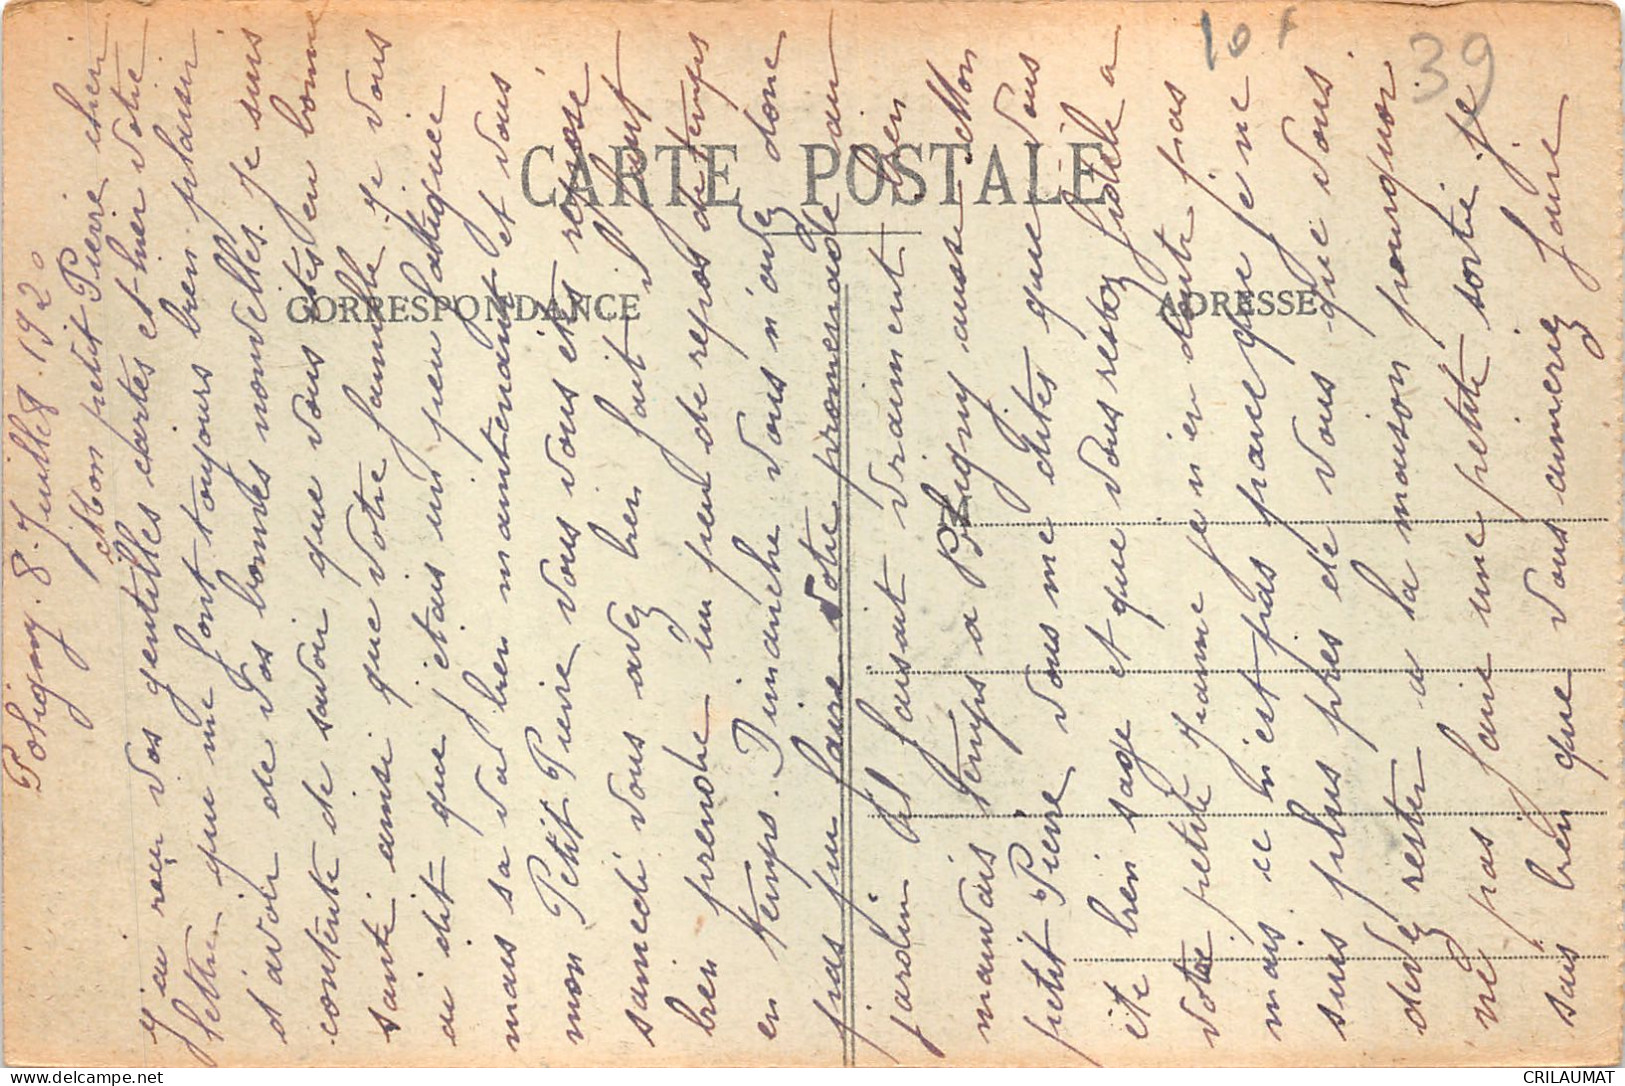 CARTE POSTALE
CORRESPONDANCE
ADRESSE
10 F
39
Poligny. 8. Juillet 1920
Mon petit Pierre chéri
J'ai reçu vos gentilles cartes et hier votre
lettre qui me font toujours bien plaisir
d'avoir de vos bonnes nouvelles. Je suis
contente de savoir que vous êtes en bonne
santé ainsi que votre famille je vous
ai dit que j'étais un peu fatiguée
mais sa va bien maintenant et vous
mon Petit Pierre vous vous êtes reposé
samedi vous avez bien fait il faut
bien prendre un peu de repos de temps
en temps. Dimanche vous n'avez donc
pas pu faire votre promenade au
jardin il faisait vraiment bien
mauvais temps a Poligny aussi Mon
petit Pierre vous me dites que vous
ete bien sage et que vous restez fidèle a
votre petite Jeanne je n'en doute pas
mais ce n'est pas parce que je ne
suis plus près de vous que vous
devez rester a la maison pourquoi
ne pas faire une petite sortie je
sais bien que vous aimerez faire